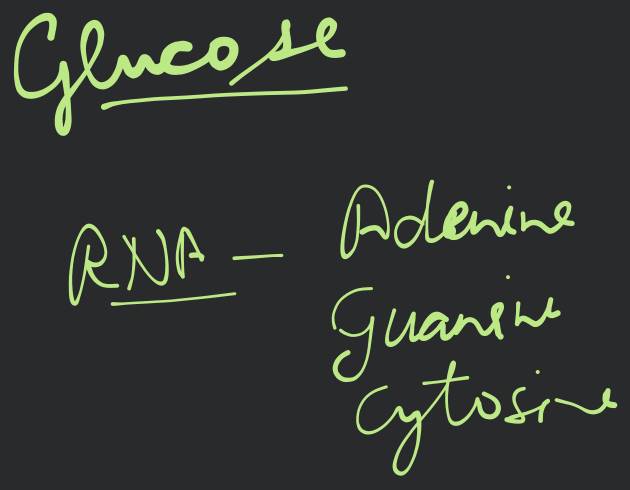 Glucose
RNA — Adenine
Guanine
Cytosine